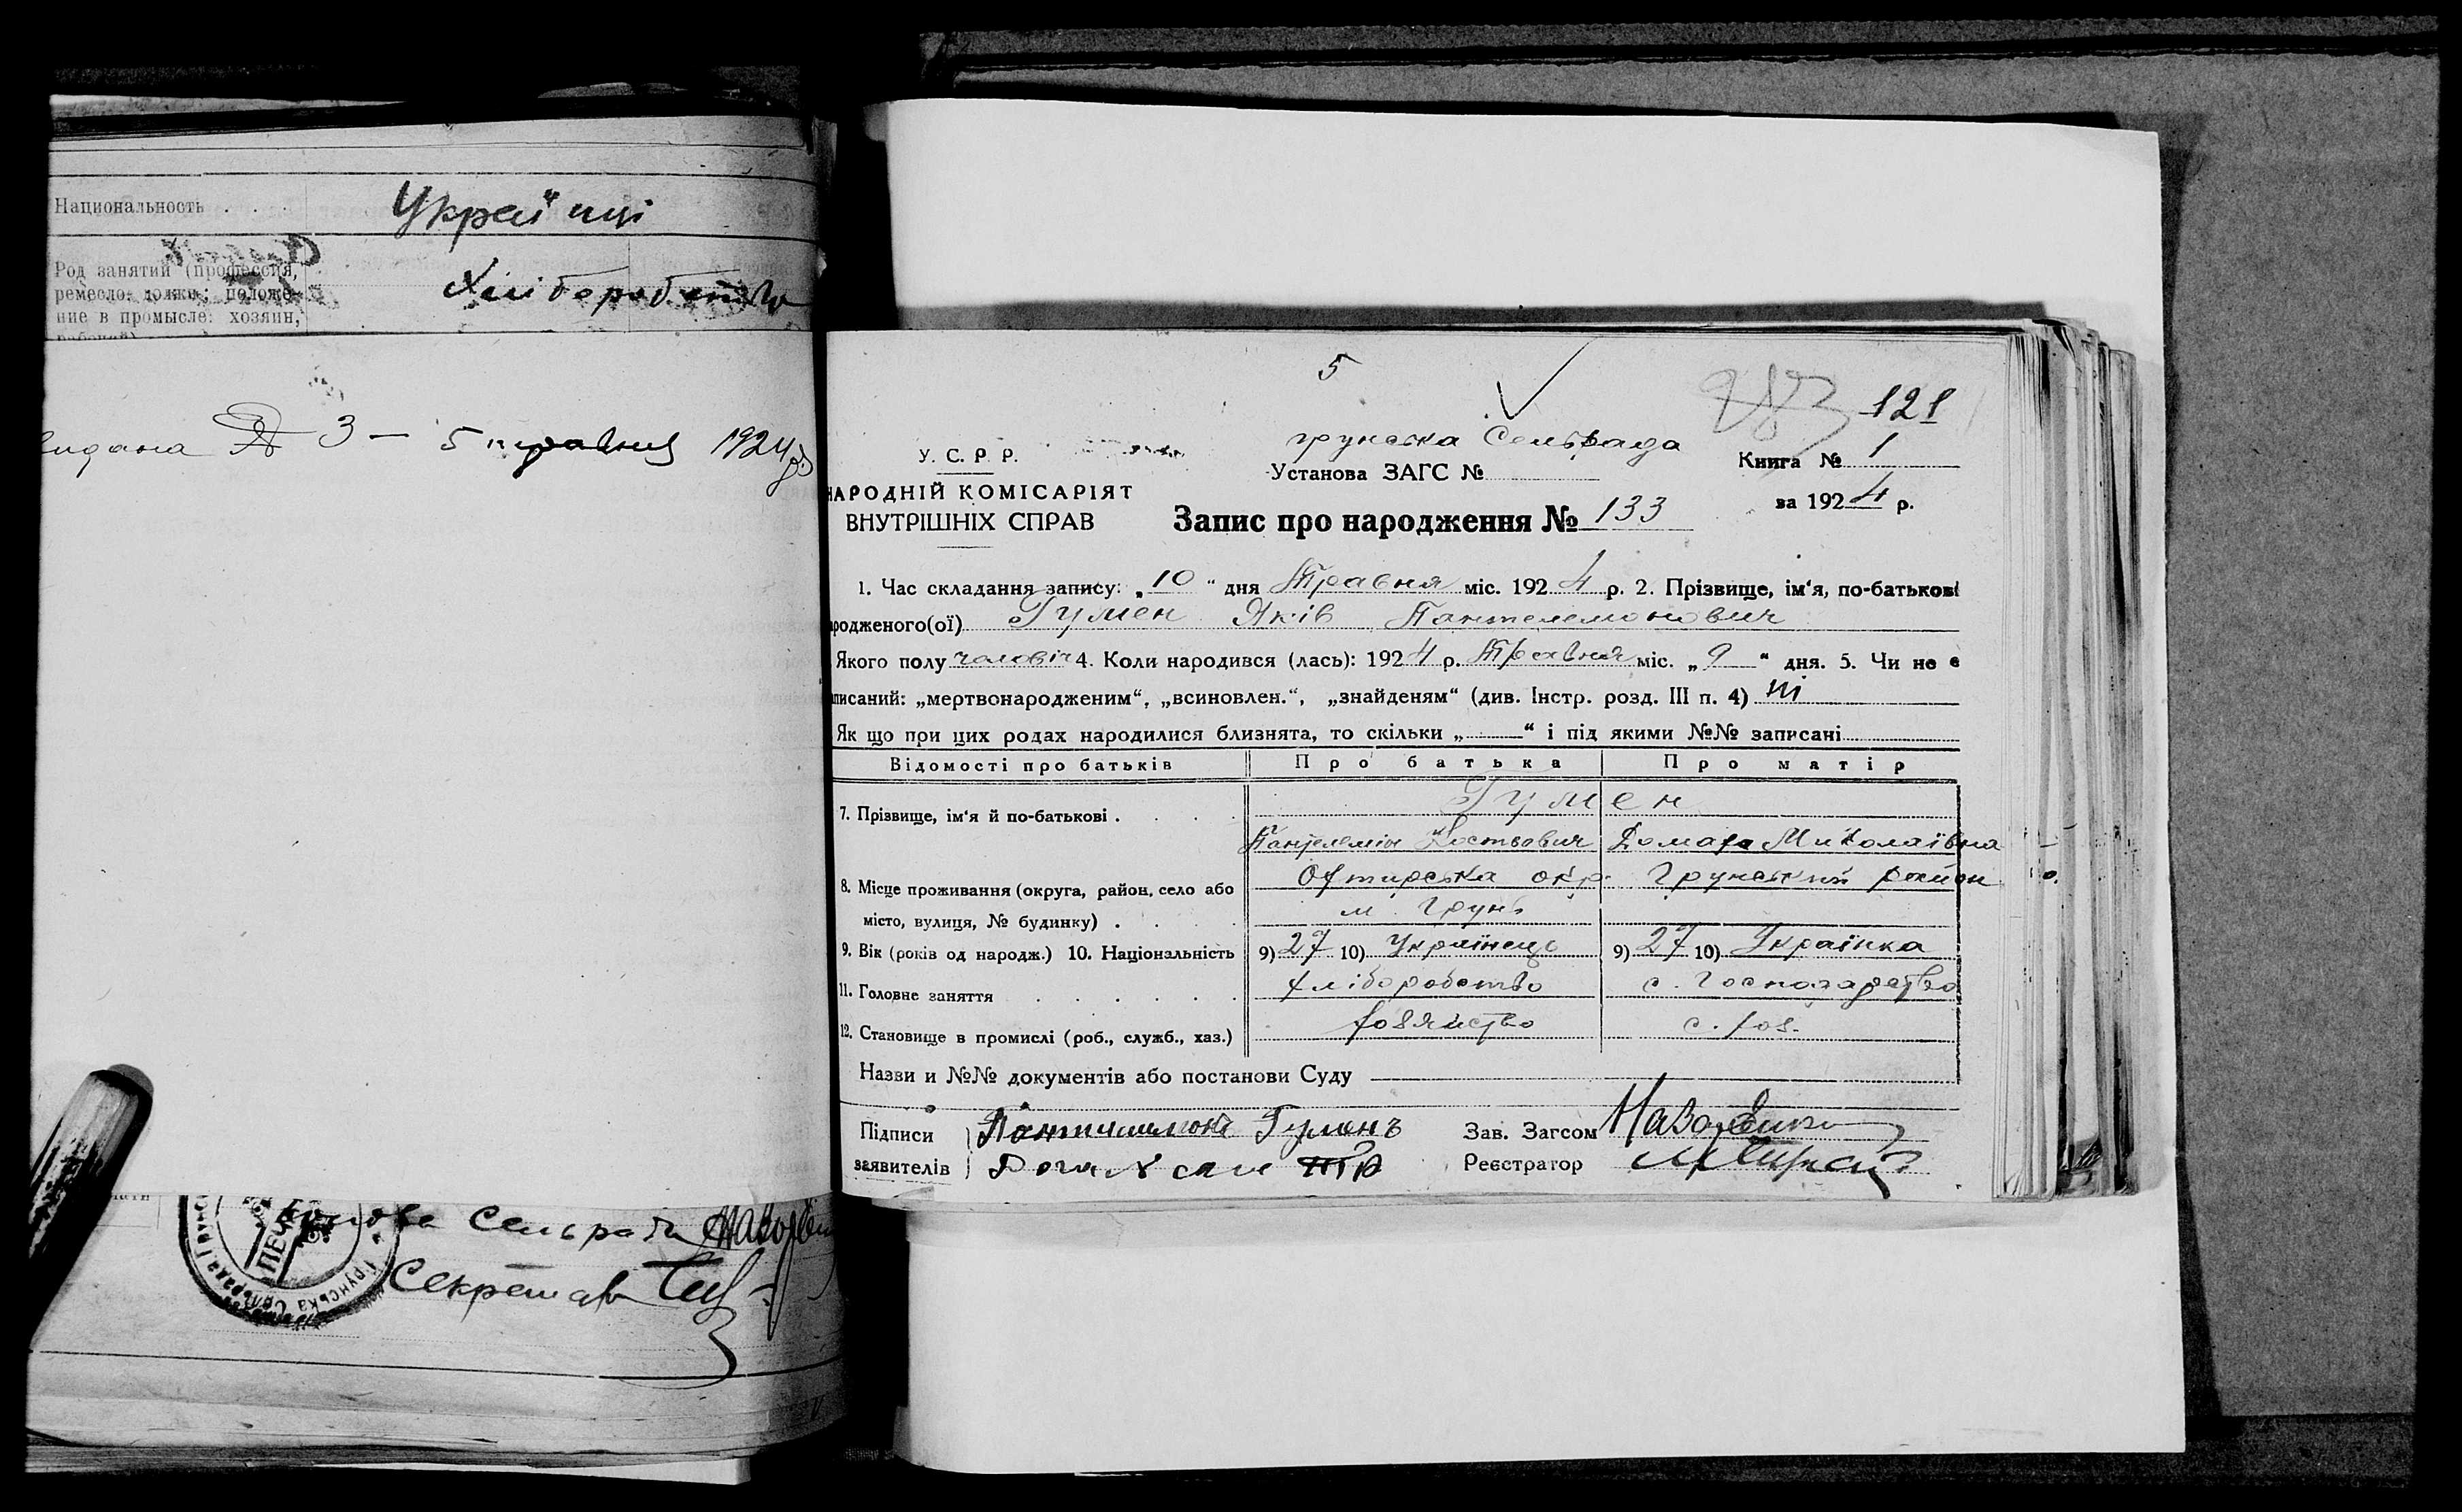 Национальность . . .
Українці
Род занятий (профессия,
ремесло, должн.; положе-
ние в промысле: хозяин,
Хліборобство
видана 3 — 5 травня 1924 р
Голова Сельради
Секретар
Грунська Сельрада
5
283 121
У. С. Р. Р.
Грунська Сельрада
Установа ЗАГС №
Книга № 1
НАРОДНІЙ КОМІСАРІЯТ
ВНУТРІШНІХ СПРАВ
за 1924 р.
Запис про народження № 133
1. Час складання запису: „10“ дня Травня міс. 1924 р. 2. Прізвище, ім'я, по-батькові
родженого(ої) Гумен Яків Пантелемонович
Якого полу чоловіч 4. Коли народився (лась): 1924 р. Травня міс. „9“ дня. 5. Чи не є
писаний: „мертвонародженим“, „всиновлен.“, „знайденям“ (див. Інстр. розд. III п. 4) ні
Як що при цих родах народилися близнята, то скільки „ “ і під якими №№ записані
Відомості про батьків Про батька Про матір
7. Прізвище, ім'я й по-батькові . Гумен
Пантелемон Костьович Домаха Миколаївна
8. Місце проживання (округа, район, село або Охтирська окр. Грунський район
місто, вулиця, № будинку) . м. Грунь
9. Вік (років од народж.) 10. Національність 9) 27 10) Українець 9) 27 10) Українка
11. Головне заняття хліборобство с. господарство
12. Становище в промислі (роб., служб., хаз.) хозяйство с. хоз.
Назви и №№ документів або постанови Суду
Підписи Зав. Загсом
Гуменъ
заявителів Реєстратор